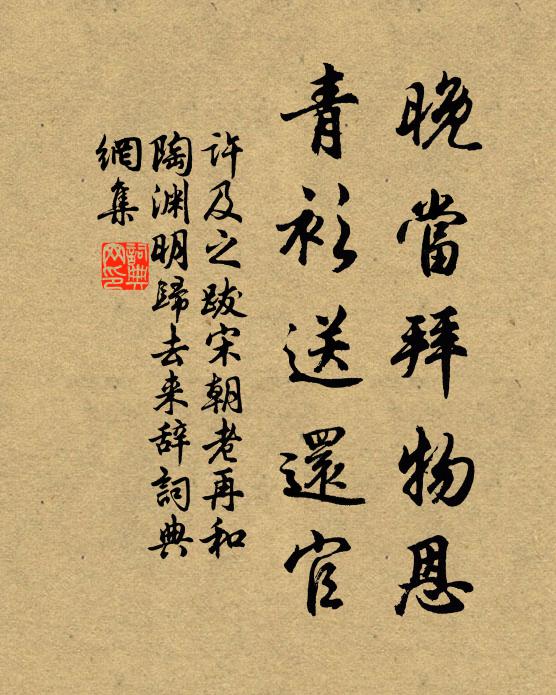 晚當拜物恩
青衫送還官
許及之跋宋朝老再和
陶渊明歸去来辞詞典
網集
詞典網印